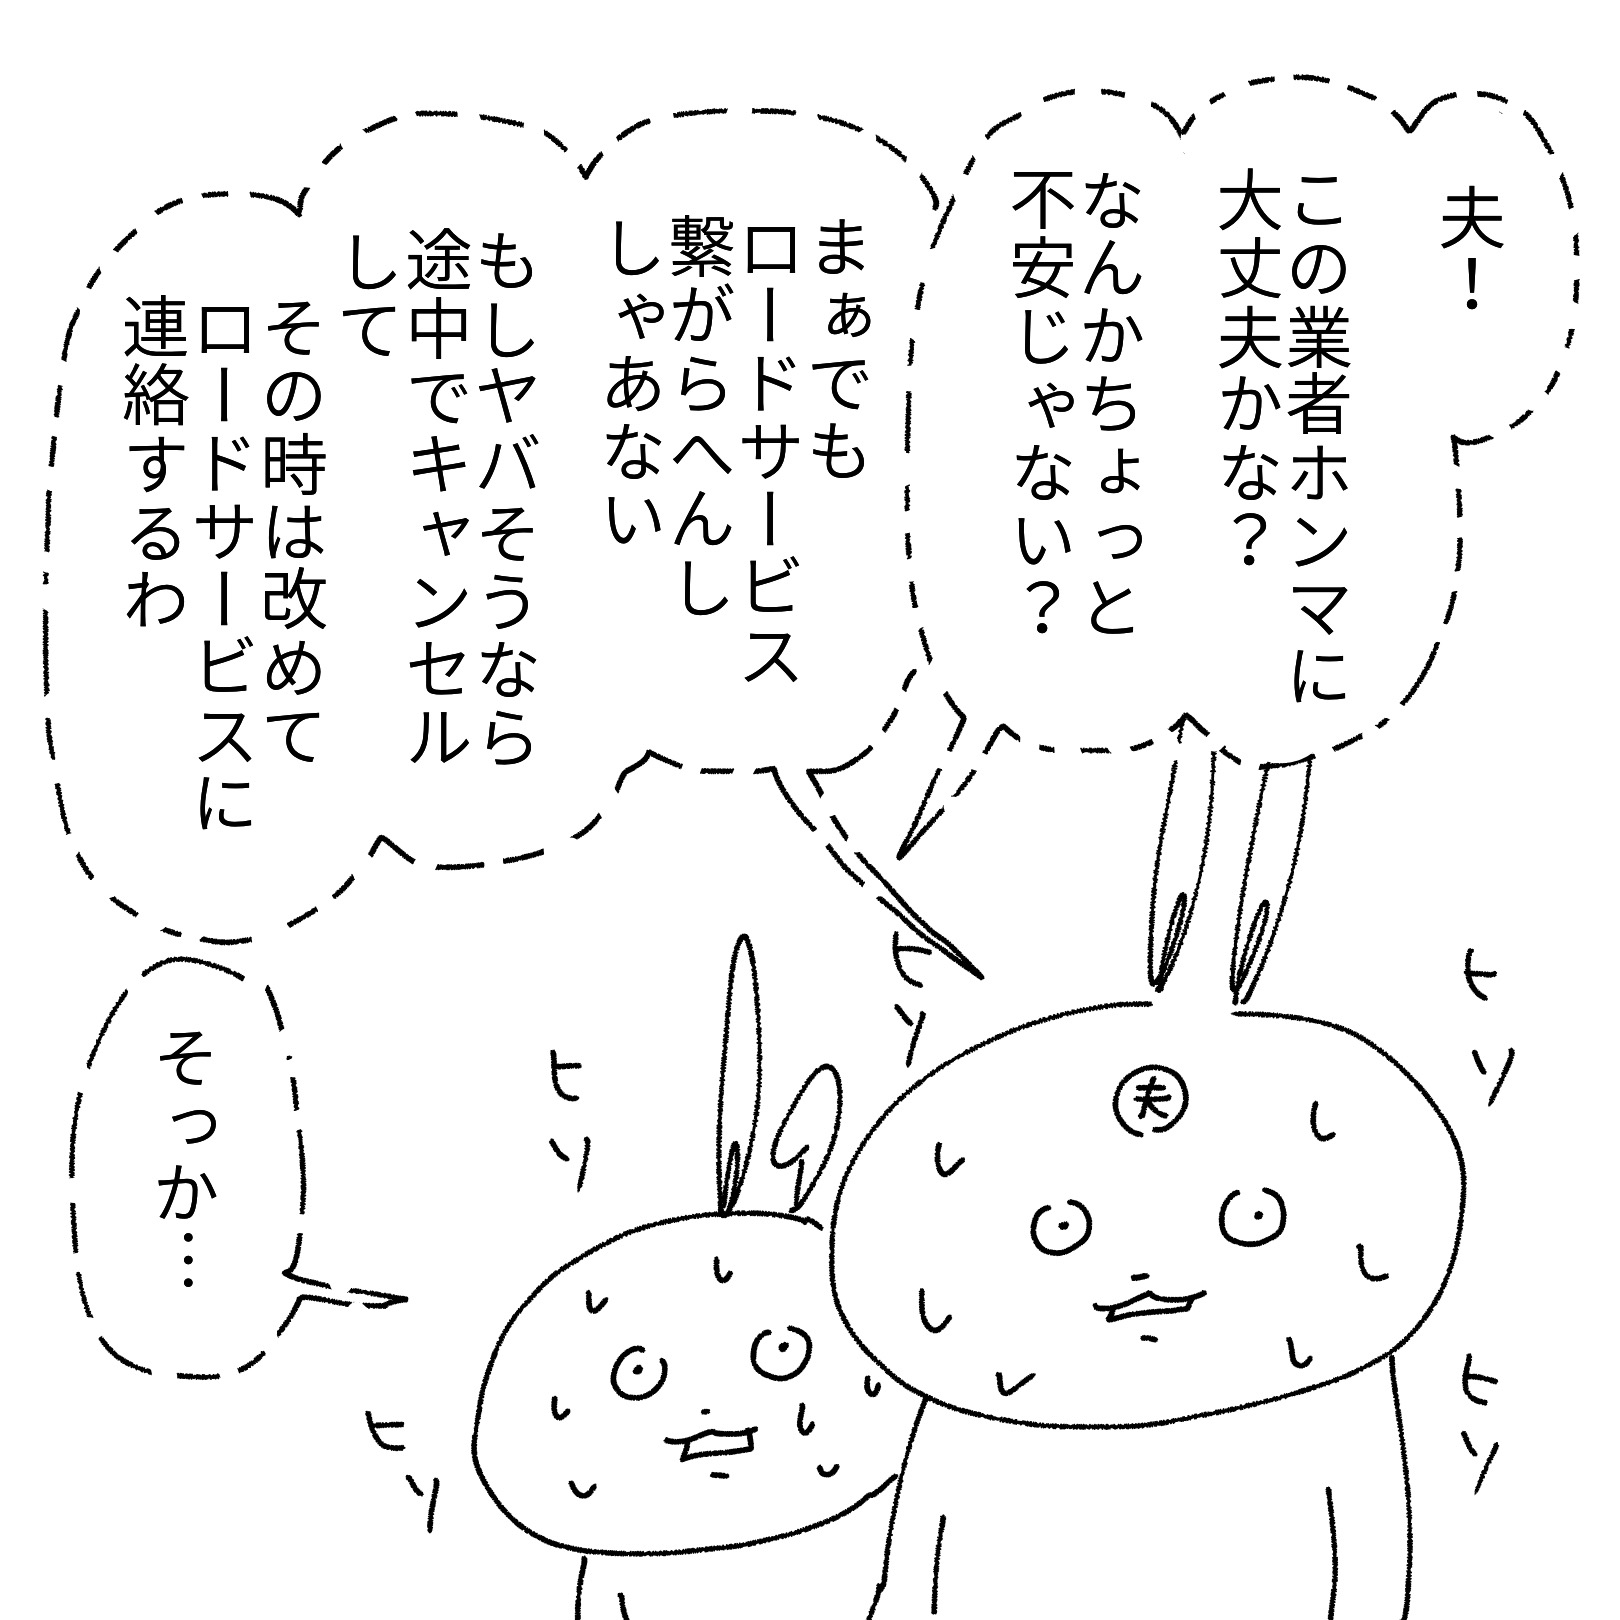 夫！
この業者ホンマに
大丈夫かな？
なんかちょっと
不安じゃない？
まぁでも
ロードサービス
繋がらへんし
しゃあない
もしヤバそうなら
途中でキャンセル
して
その時は改めて
ロードサービスに
連絡するわ
そっか…
ヒソ
ヒソ
ヒソ
ヒソ
ヒソ
夫